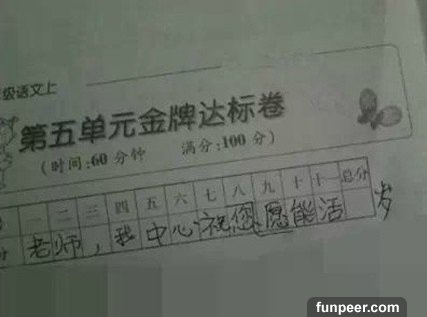 级语文上
第五单元金牌达标卷
(时间:60 分钟 满分:100 分)
一 二 三 四 五 六 七 八 九 十 十一 总分
分 老师，我中心祝您愿能活 岁
funpeer.com